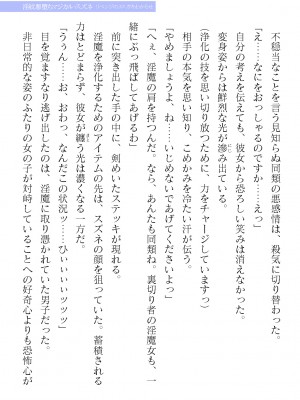 不穏当なことを言う見知らぬ同類の悪感情は、殺気に切り替わった。
「え……なにをおっしゃるのですか……えっ」
自分の考えを伝えても、彼女から恐ろしい笑みは消えなかった。
変身姿からは鮮烈な光が滲み出ている。
（浄化の技を思い切り放つために、力をチャージしていますっ）
相手の本気を思い知り、こめかみを冷たい汗が伝う。
「やめましょうよ、ね……いじめないであげてくださいよっ」
「へぇ、淫魔の肩を持つんだ。なら、あんたも同類ね。裏切り者の淫魔女も、一
緒にぶっ飛ばしてあげるわ」
前に突き出した手の中に、剣めいたステッキが現れる。
淫魔を浄化するためのアイテムの先は、スズネの顔を狙っていた。蓄積される
力はとどまらず、彼女が纏う光は濃くなる一方だ。
「うぅん……お、おわっ、なんだこの状況ッ……ひぃぃぃッッッ」
目を覚ますなり逃げ出したのは、淫魔に取り憑かれていた男子だった。
非日常的な姿のふたりの女の子が対峙していることへの好奇心よりも恐怖心が